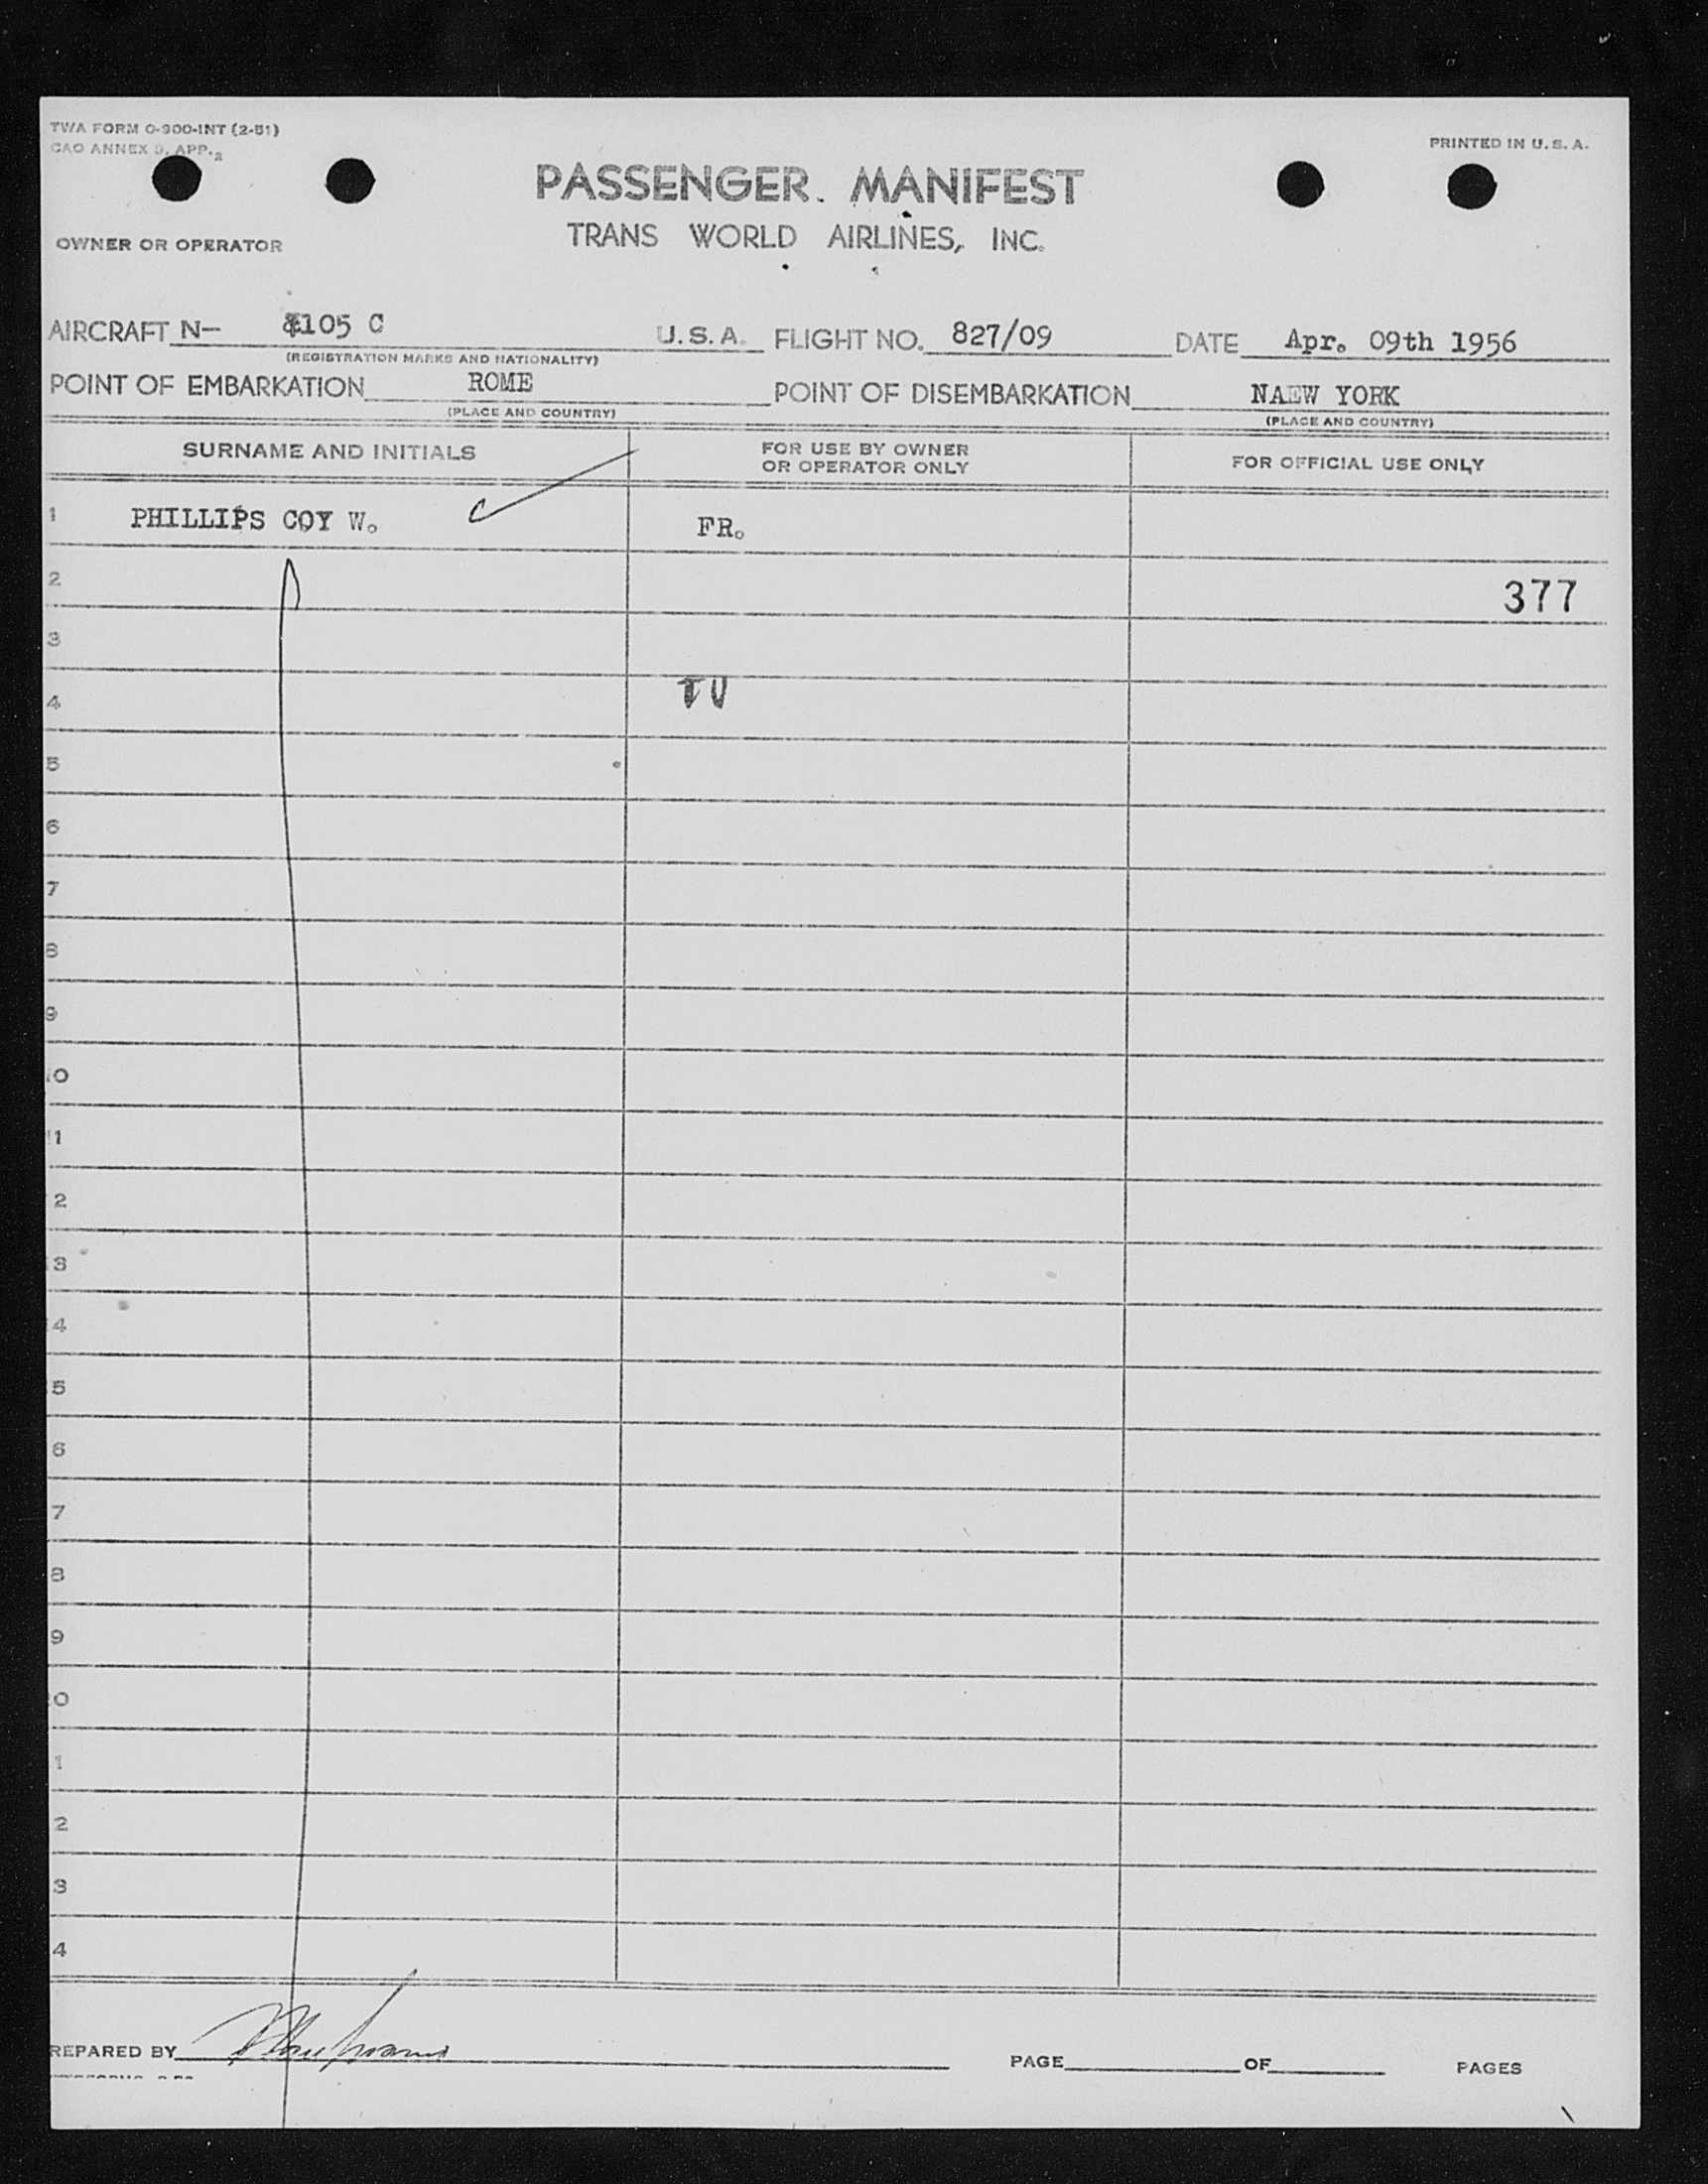 TWA FORM O-900-INT (2-51)
CAO ANNEX 9, APP. 2
PRINTED IN U.S.A.
PASSENGER MANIFEST
OWNER OR OPERATOR
TRANS WORLD AIRLINES, INC.
AIRCRAFT N— 105 C U.S.A. FLIGHT NO. 827/09 DATE Apr. 09th 1956
(REGISTRATION MARKS AND NATIONALITY)
POINT OF EMBARKATION ROME POINT OF DISEMBARKATION NAEW YORK
(PLACE AND COUNTRY) (PLACE AND COUNTRY)
SURNAME AND INITIALS FOR USE BY OWNER OR OPERATOR ONLY FOR OFFICIAL USE ONLY
1 PHILLIPS COY W. FR.
2 377
3
4 TU
5
6
7
8
9
0
1
2
3
4
5
6
7
8
9
0
1
2
3
4
REPARED BY PAGE OF PAGES